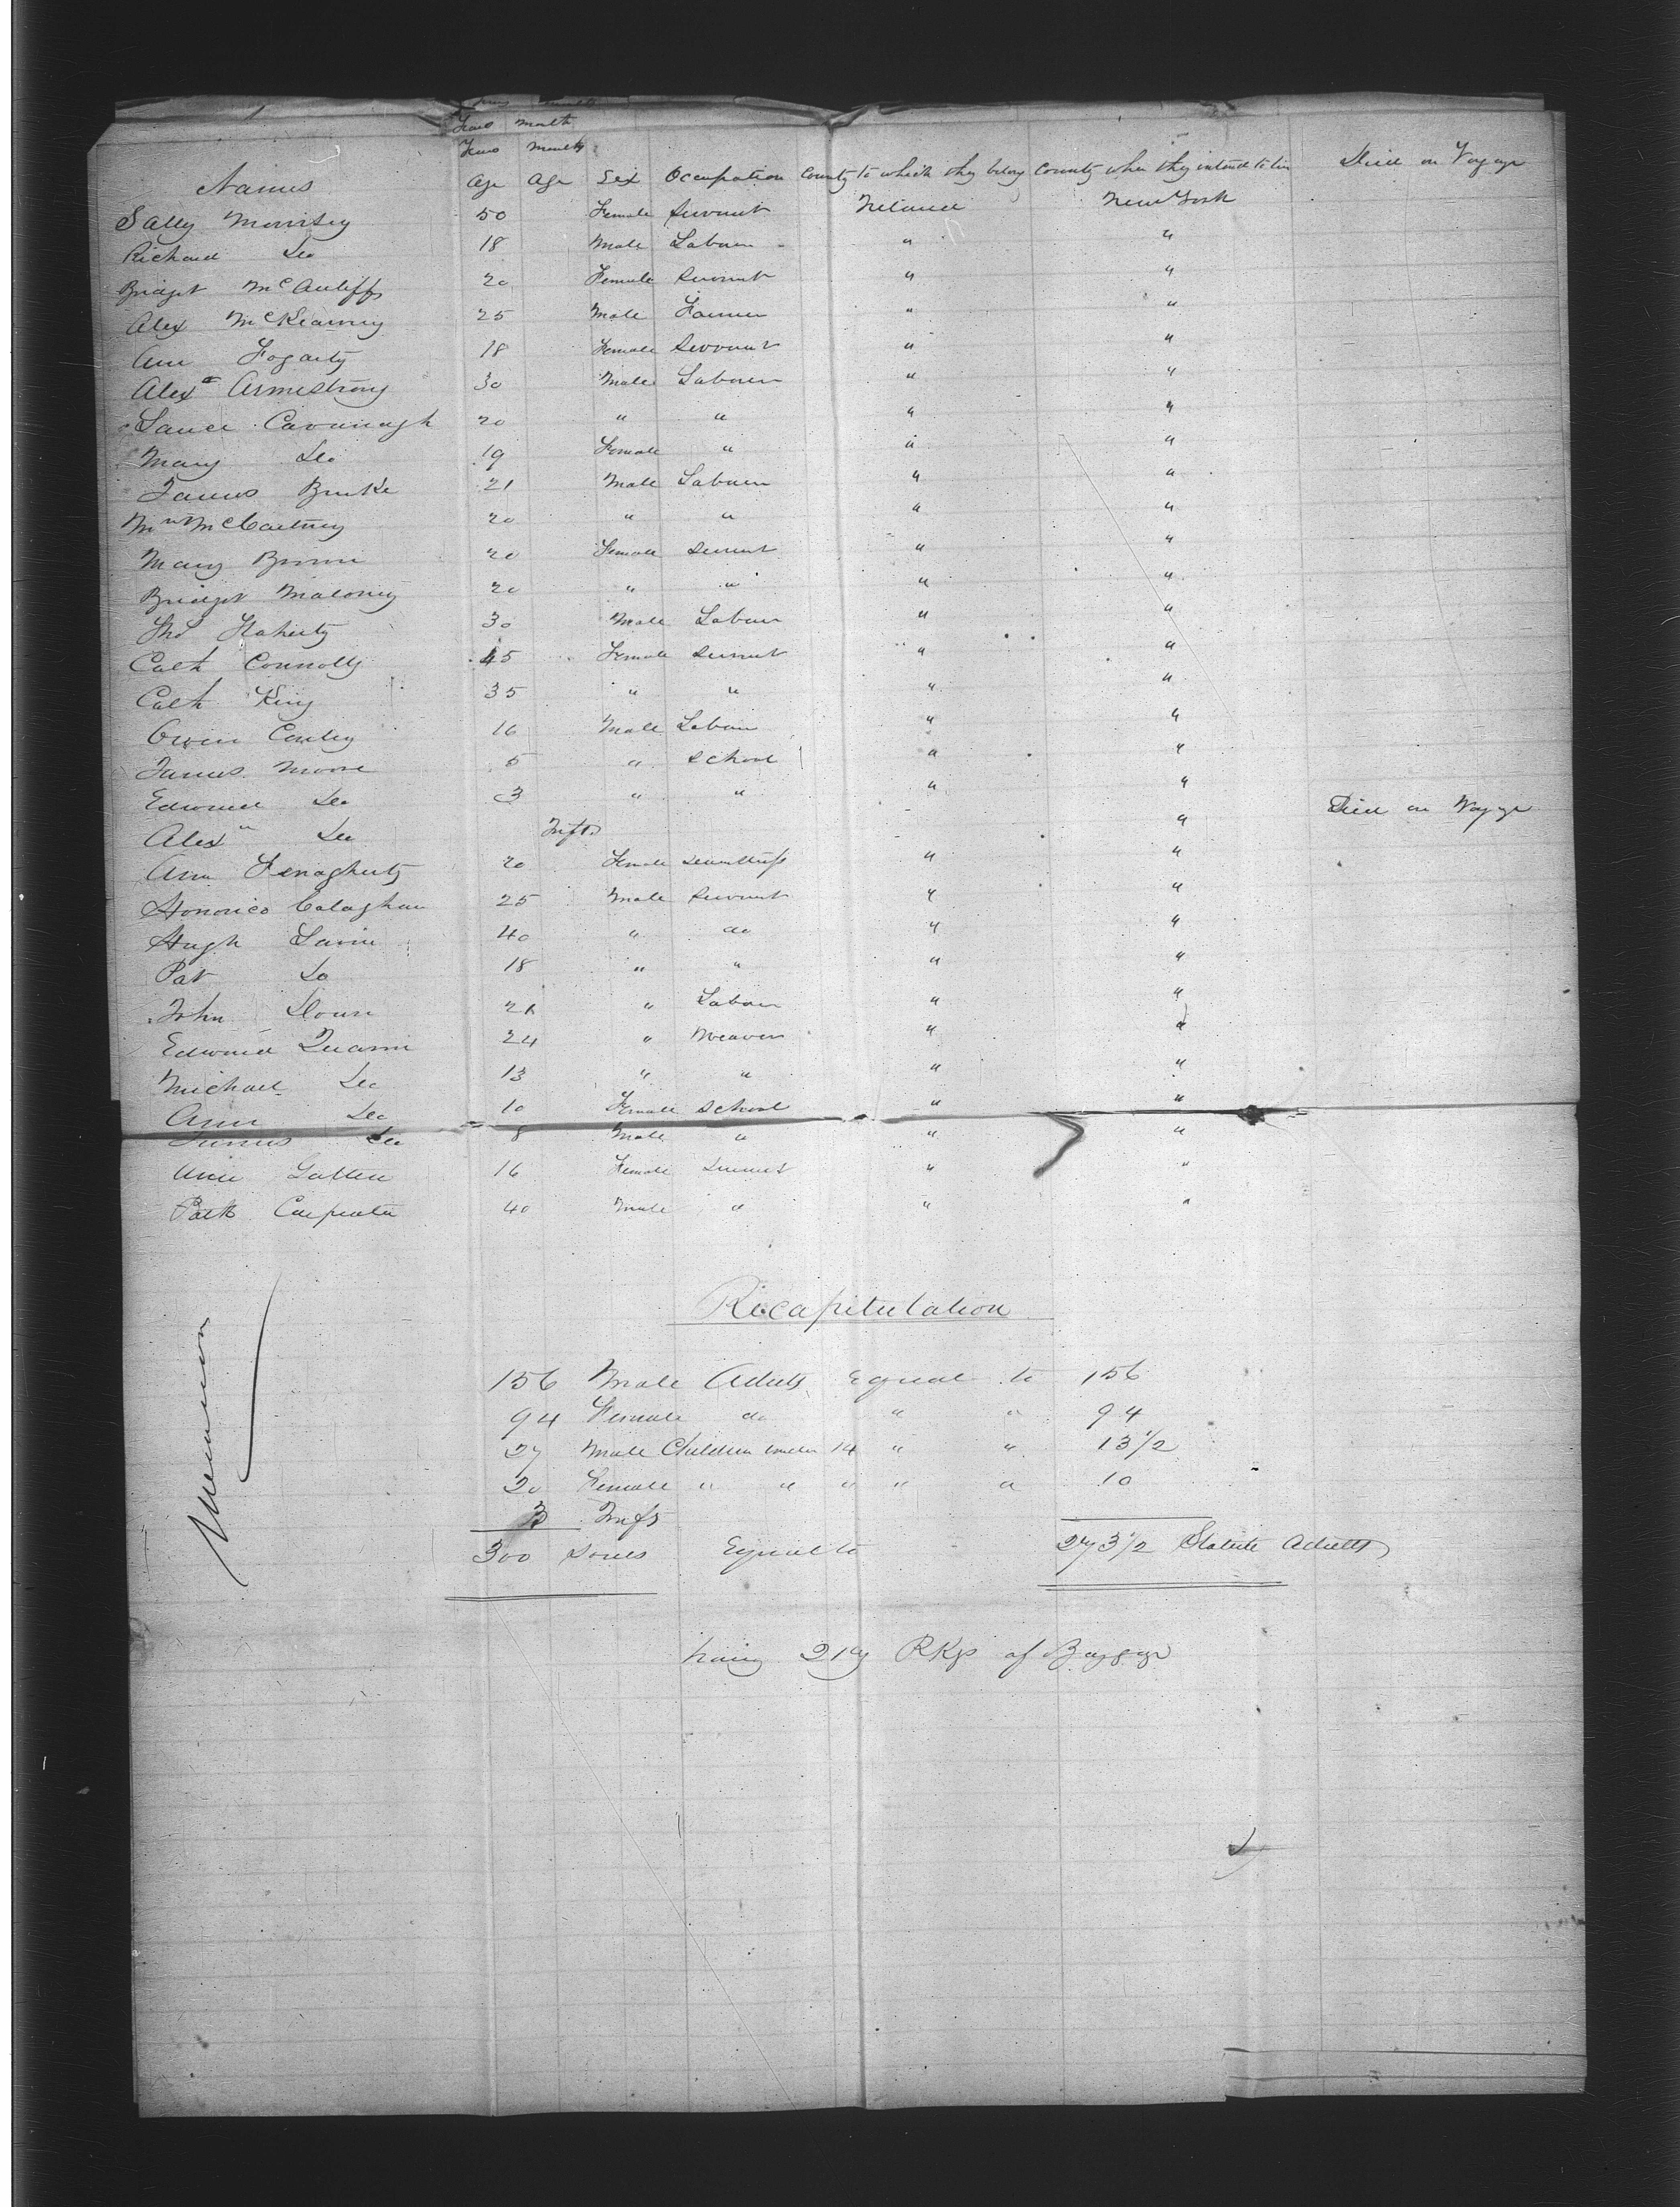 Years Months
Years Month
Years Months
Names Age Age Sex Occupation County to which they belong County where they intend to live Died on Voyage
Sally Morrisey 50 Female Servant Ireland New York
Richard Do 18 Male Labourer " "
Bridget McAuliffe 20 Female Servant " "
Alex McKearney 25 Male Farmer " "
Ann Fogarty 18 Female Servant " "
Alexr Armstrong 30 Male Labourer " "
Cavanagh 20 " " " "
Mary Do 19 Female " " "
James Burke 21 Male Labourer " "
Wm McCartney 20 " " " "
Mary 20 Female Servant " "
Bridget Maloney 20 " " " "
Thos Flaherty 30 Male Labourer " "
Cath Connolly 45 Female Servant " "
Cath King 35 " " " "
Owen Conley 16 Male Labour " "
James Moore 5 " School " "
Edward Do 3 " " " "
Alexr Do Infts " Died on Voyage
Ann 20 Female Seamstress " "
Calaghan 25 Male Servant " "
Hugh 40 " do " "
Pat Do 18 " " " "
John 21 " Labour " "
Edward 24 " Weaver " "
Michael Do 13 " " " "
Ann Do 10 Female School " "
James Do 8 Male " " "
Ann 16 Female Servant " "
Patk Carpenter 40 Male " " "
Recapitulation
156 Male Adults Equal to 156
94 Female do " " 94
27 Male Children under 14 " " 13 1/2
20 Female " " " " " 10
3 Infts
300 Souls Equal to 273 1/2 Statute Adults
having 219 PKgs of Baggage